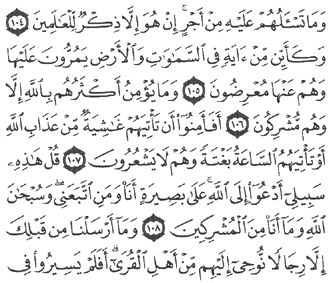 وَمَا تَسْـَٔلُهُمْ عَلَيْهِ مِنْ أَجْرٍ ۚ إِنْ هُوَ إِلَّا ذِكْرٌ لِّلْعَٰلَمِينَ ١٠٤
وَكَأَيِّن مِّنْ ءَايَةٍ فِى ٱلسَّمَٰوَٰتِ وَٱلْأَرْضِ يَمُرُّونَ عَلَيْهَا
وَهُمْ عَنْهَا مُعْرِضُونَ ١٠٥ وَمَا يُؤْمِنُ أَكْثَرُهُم بِٱللَّهِ إِلَّا
وَهُم مُّشْرِكُونَ ١٠٦ أَفَأَمِنُوٓا۟ أَن تَأْتِيَهُمْ غَٰشِيَةٌ مِّنْ عَذَابِ ٱللَّهِ
أَوْ تَأْتِيَهُمُ ٱلسَّاعَةُ بَغْتَةً وَهُمْ لَا يَشْعُرُونَ ١٠٧ قُلْ هَٰذِهِۦ
سَبِيلِىٓ أَدْعُوٓا۟ إِلَى ٱللَّهِ ۚ عَلَىٰ بَصِيرَةٍ أَنَا۠ وَمَنِ ٱتَّبَعَنِى ۖ وَسُبْحَٰنَ
ٱللَّهِ وَمَآ أَنَا۠ مِنَ ٱلْمُشْرِكِينَ ١٠٨ وَمَآ أَرْسَلْنَا مِن قَبْلِكَ
إِلَّا رِجَالًا نُّوحِىٓ إِلَيْهِم مِّنْ أَهْلِ ٱلْقُرَىٰٓ ۗ أَفَلَمْ يَسِيرُوا۟ فِى